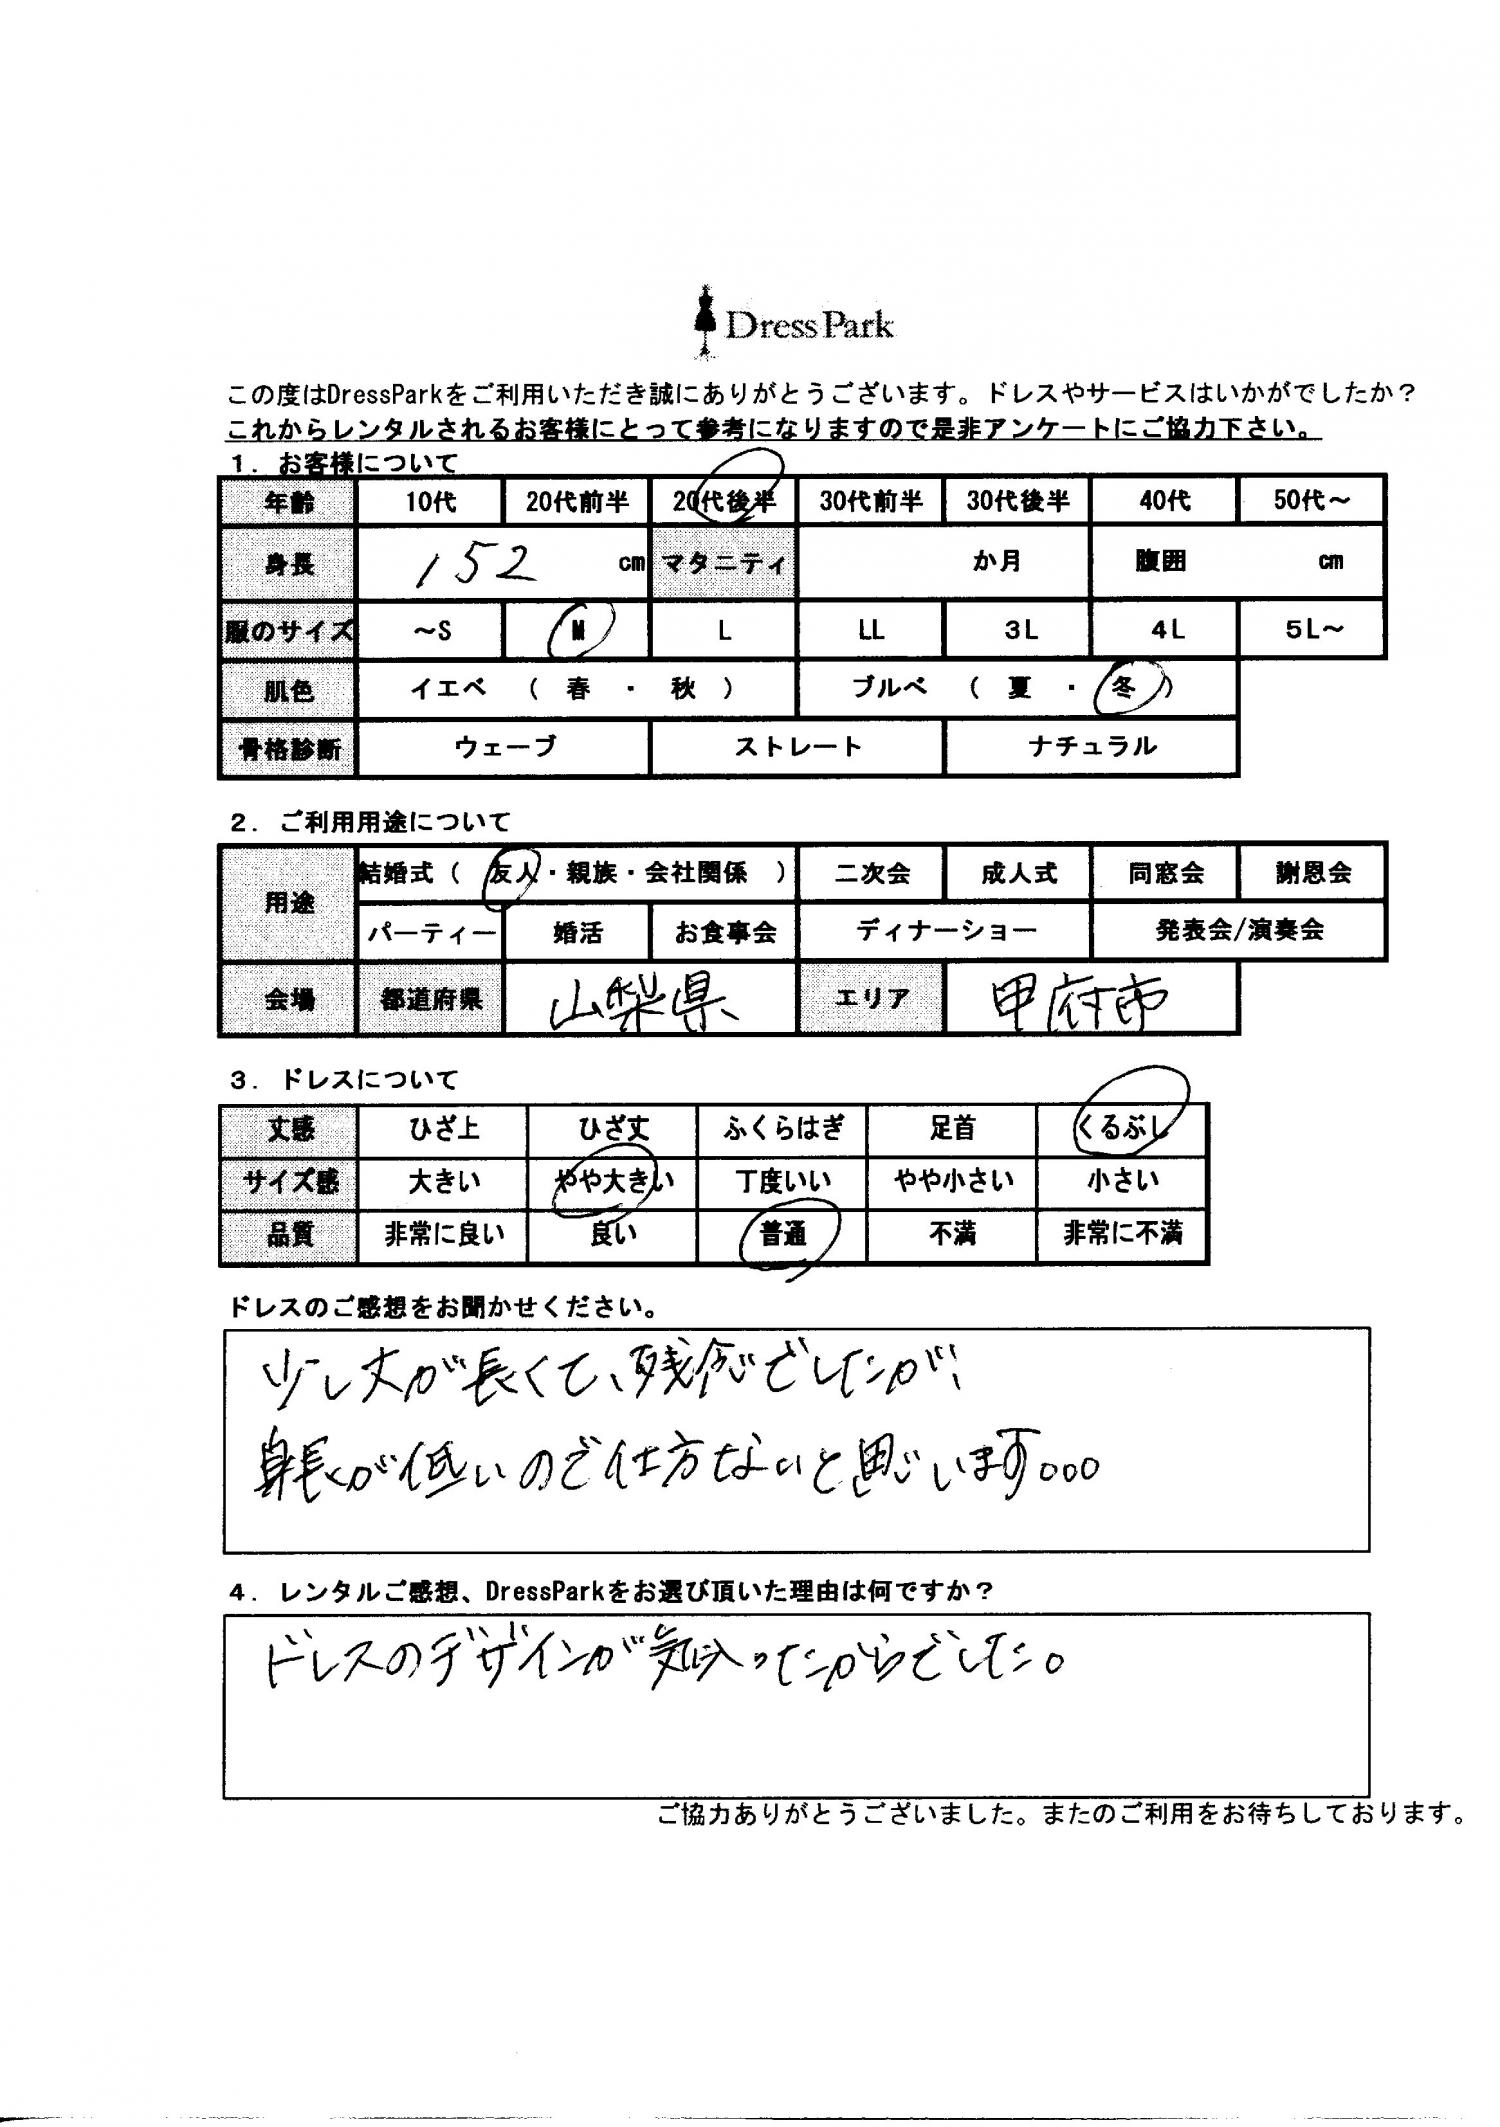 Dress Park
この度はDressParkをご利用いただき誠にありがとうございます。ドレスやサービスはいかがでしたか？
これからレンタルされるお客様にとって参考になりますので是非アンケートにご協力下さい。
1. お客様について
年齢 10代 20代前半 20代後半 30代前半 30代後半 40代 50代～
身長 152 cm マタニティ か月 腹囲 cm
服のサイズ ～S M L LL 3L 4L 5L～
肌色 イエベ （ 春 ・ 秋 ） ブルベ （ 夏 ・ 冬 ）
骨格診断 ウェーブ ストレート ナチュラル
2. ご利用用途について
用途 結婚式（ 友人・親族・会社関係 ） 二次会 成人式 同窓会 謝恩会
パーティー 婚活 お食事会 ディナーショー 発表会/演奏会
会場 都道府県 山梨県 エリア 甲府市
3. ドレスについて
丈感 ひざ上 ひざ丈 ふくらはぎ 足首 くるぶし
サイズ感 大きい やや大きい 丁度いい やや小さい 小さい
品質 非常に良い 良い 普通 不満 非常に不満
ドレスのご感想をお聞かせください。
少し丈が長くて、残念でしたが、
身長が低いので仕方ないと思います。。。
4. レンタルご感想、DressParkをお選び頂いた理由は何ですか？
ドレスのデザインが気に入ったからでした。
ご協力ありがとうございました。またのご利用をお待ちしております。